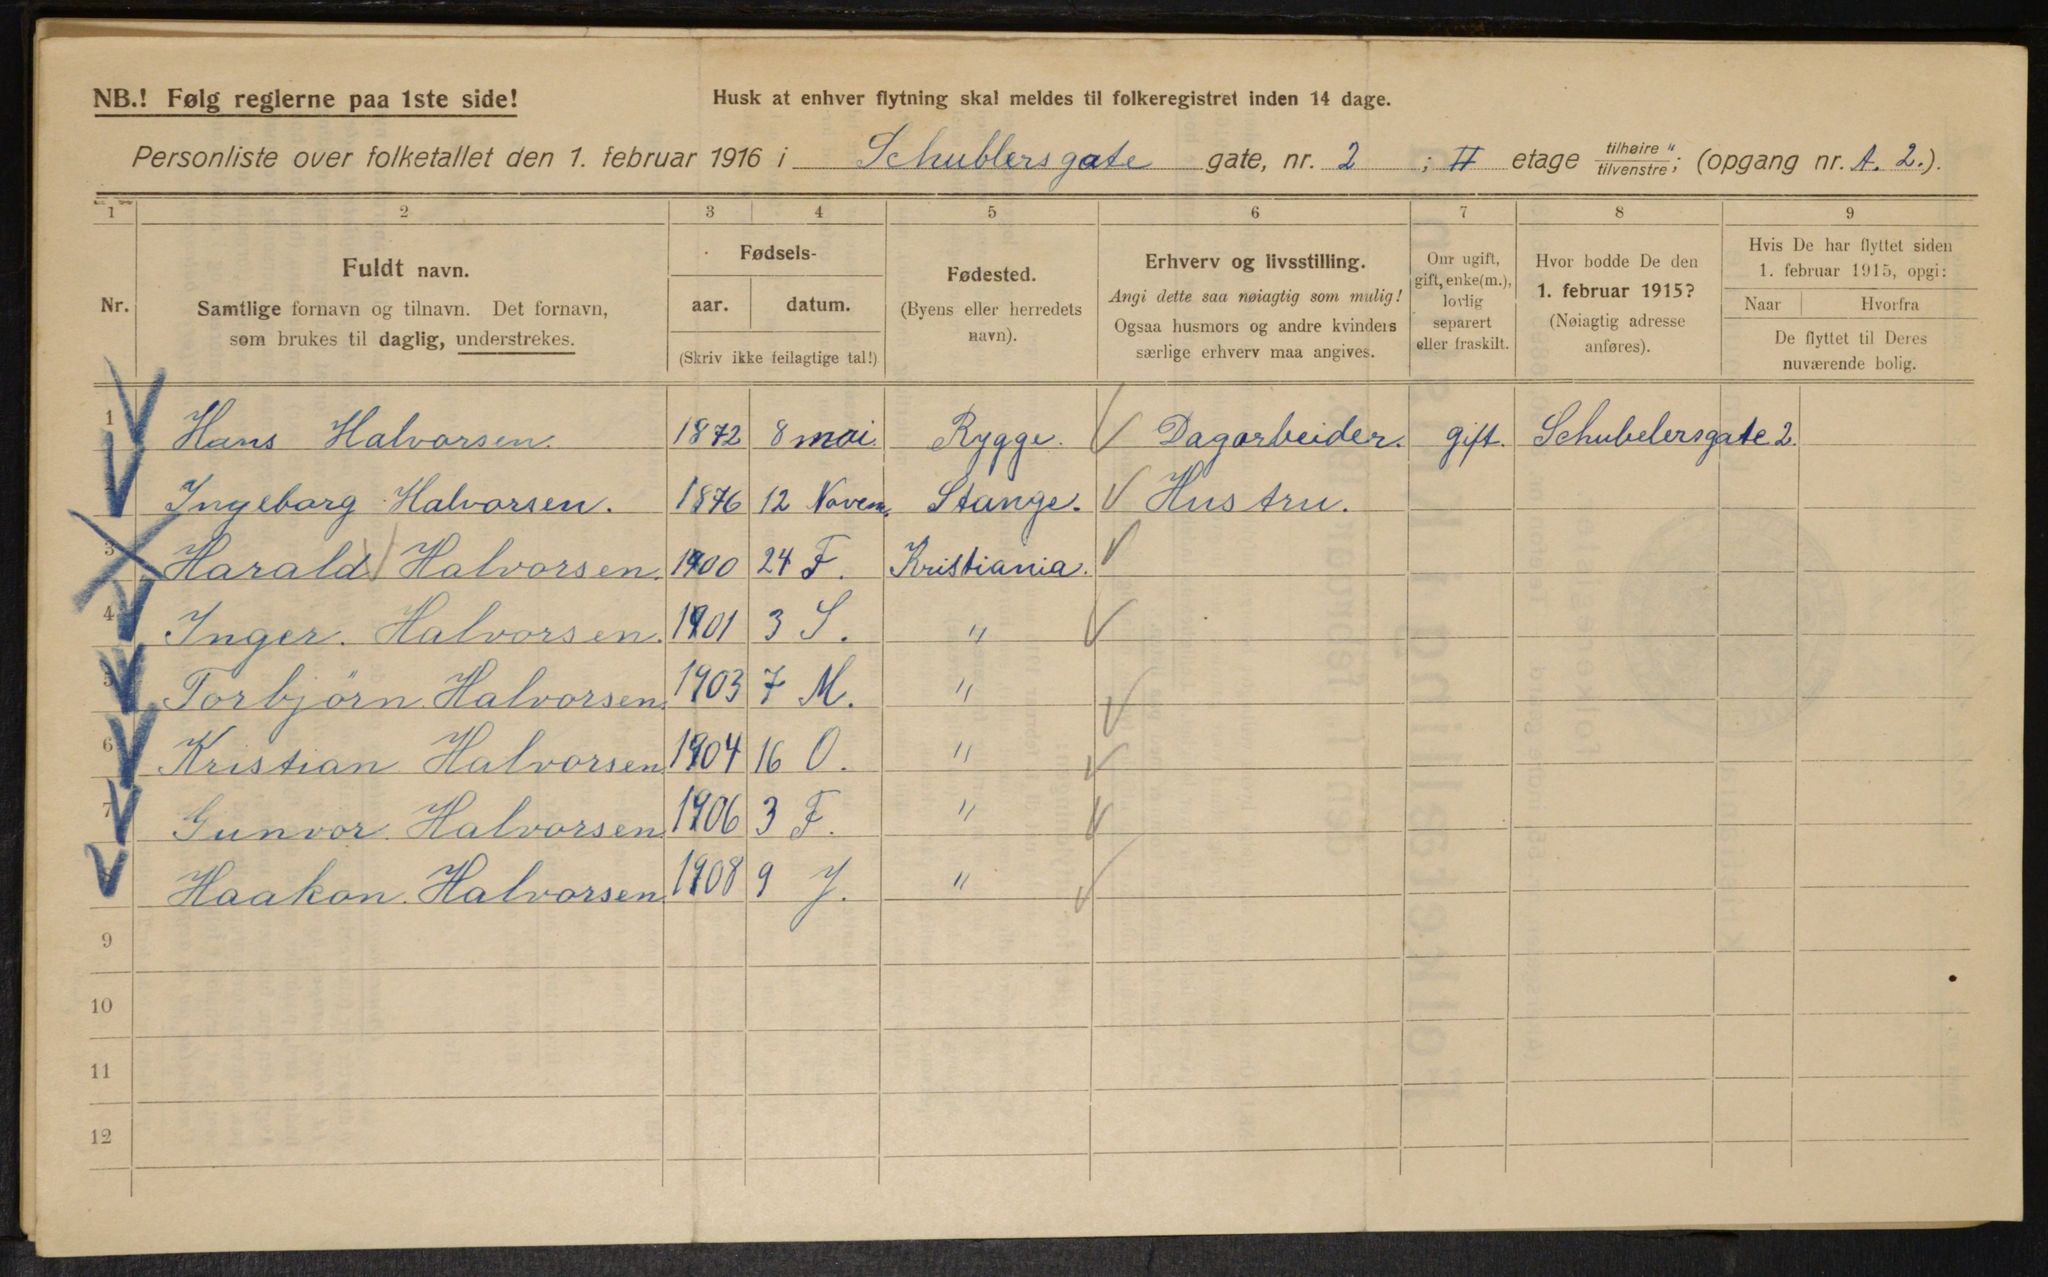 NB.! Følg reglerne paa 1ste side!
Husk at enhver flytning skal meldes til folkeregistret inden 14 dage.
Personliste over folketallet den 1. februar 1916 i Schublersgate gate, nr. 2 ; II etage tilhøire " / tilvenstre; (opgang nr. A. 2.).
1 2 3 4 5 6 7 8 9
Nr.
Fuldt navn.
Samtlige fornavn og tilnavn. Det fornavn,
som brukes til daglig, understrekes.
Fødsels-
aar. datum.
(Skriv ikke feilagtige tal!)
Fødested.
(Byens eller herredets
navn).
Erhverv og livsstilling.
Angi dette saa nøiagtig som mulig!
Ogsaa husmors og andre kvinders
særlige erhverv maa angives.
Om ugift,
gift, enke(m.),
lovlig
separert
eller fraskilt.
Hvor bodde De den
1. februar 1915?
(Nøiagtig adresse
anføres).
Hvis De har flyttet siden
1. februar 1915, opgi:
Naar Hvorfra
De flyttet til Deres
nuværende bolig.
1 Hans Halvorsen. 1872 8 mai. Rygge. Dagarbeider. gift. Schubelersgate 2.
2 Ingeborg Halvorsen. 1876 12 Novem. Stange. Hustru.
3 Harald Halvorsen. 1900 24 F. Kristiania.
4 Inger. Halvorsen. 1901 3 S. "
5 Torbjörn Halvorsen. 1903 7 M. "
6 Kristian Halvorsen 1904 16 O. "
7 Gunvor Halvorsen 1906 3 F. "
8 Haakon. Halvorsen. 1908 9 J. "
9
10
11
12